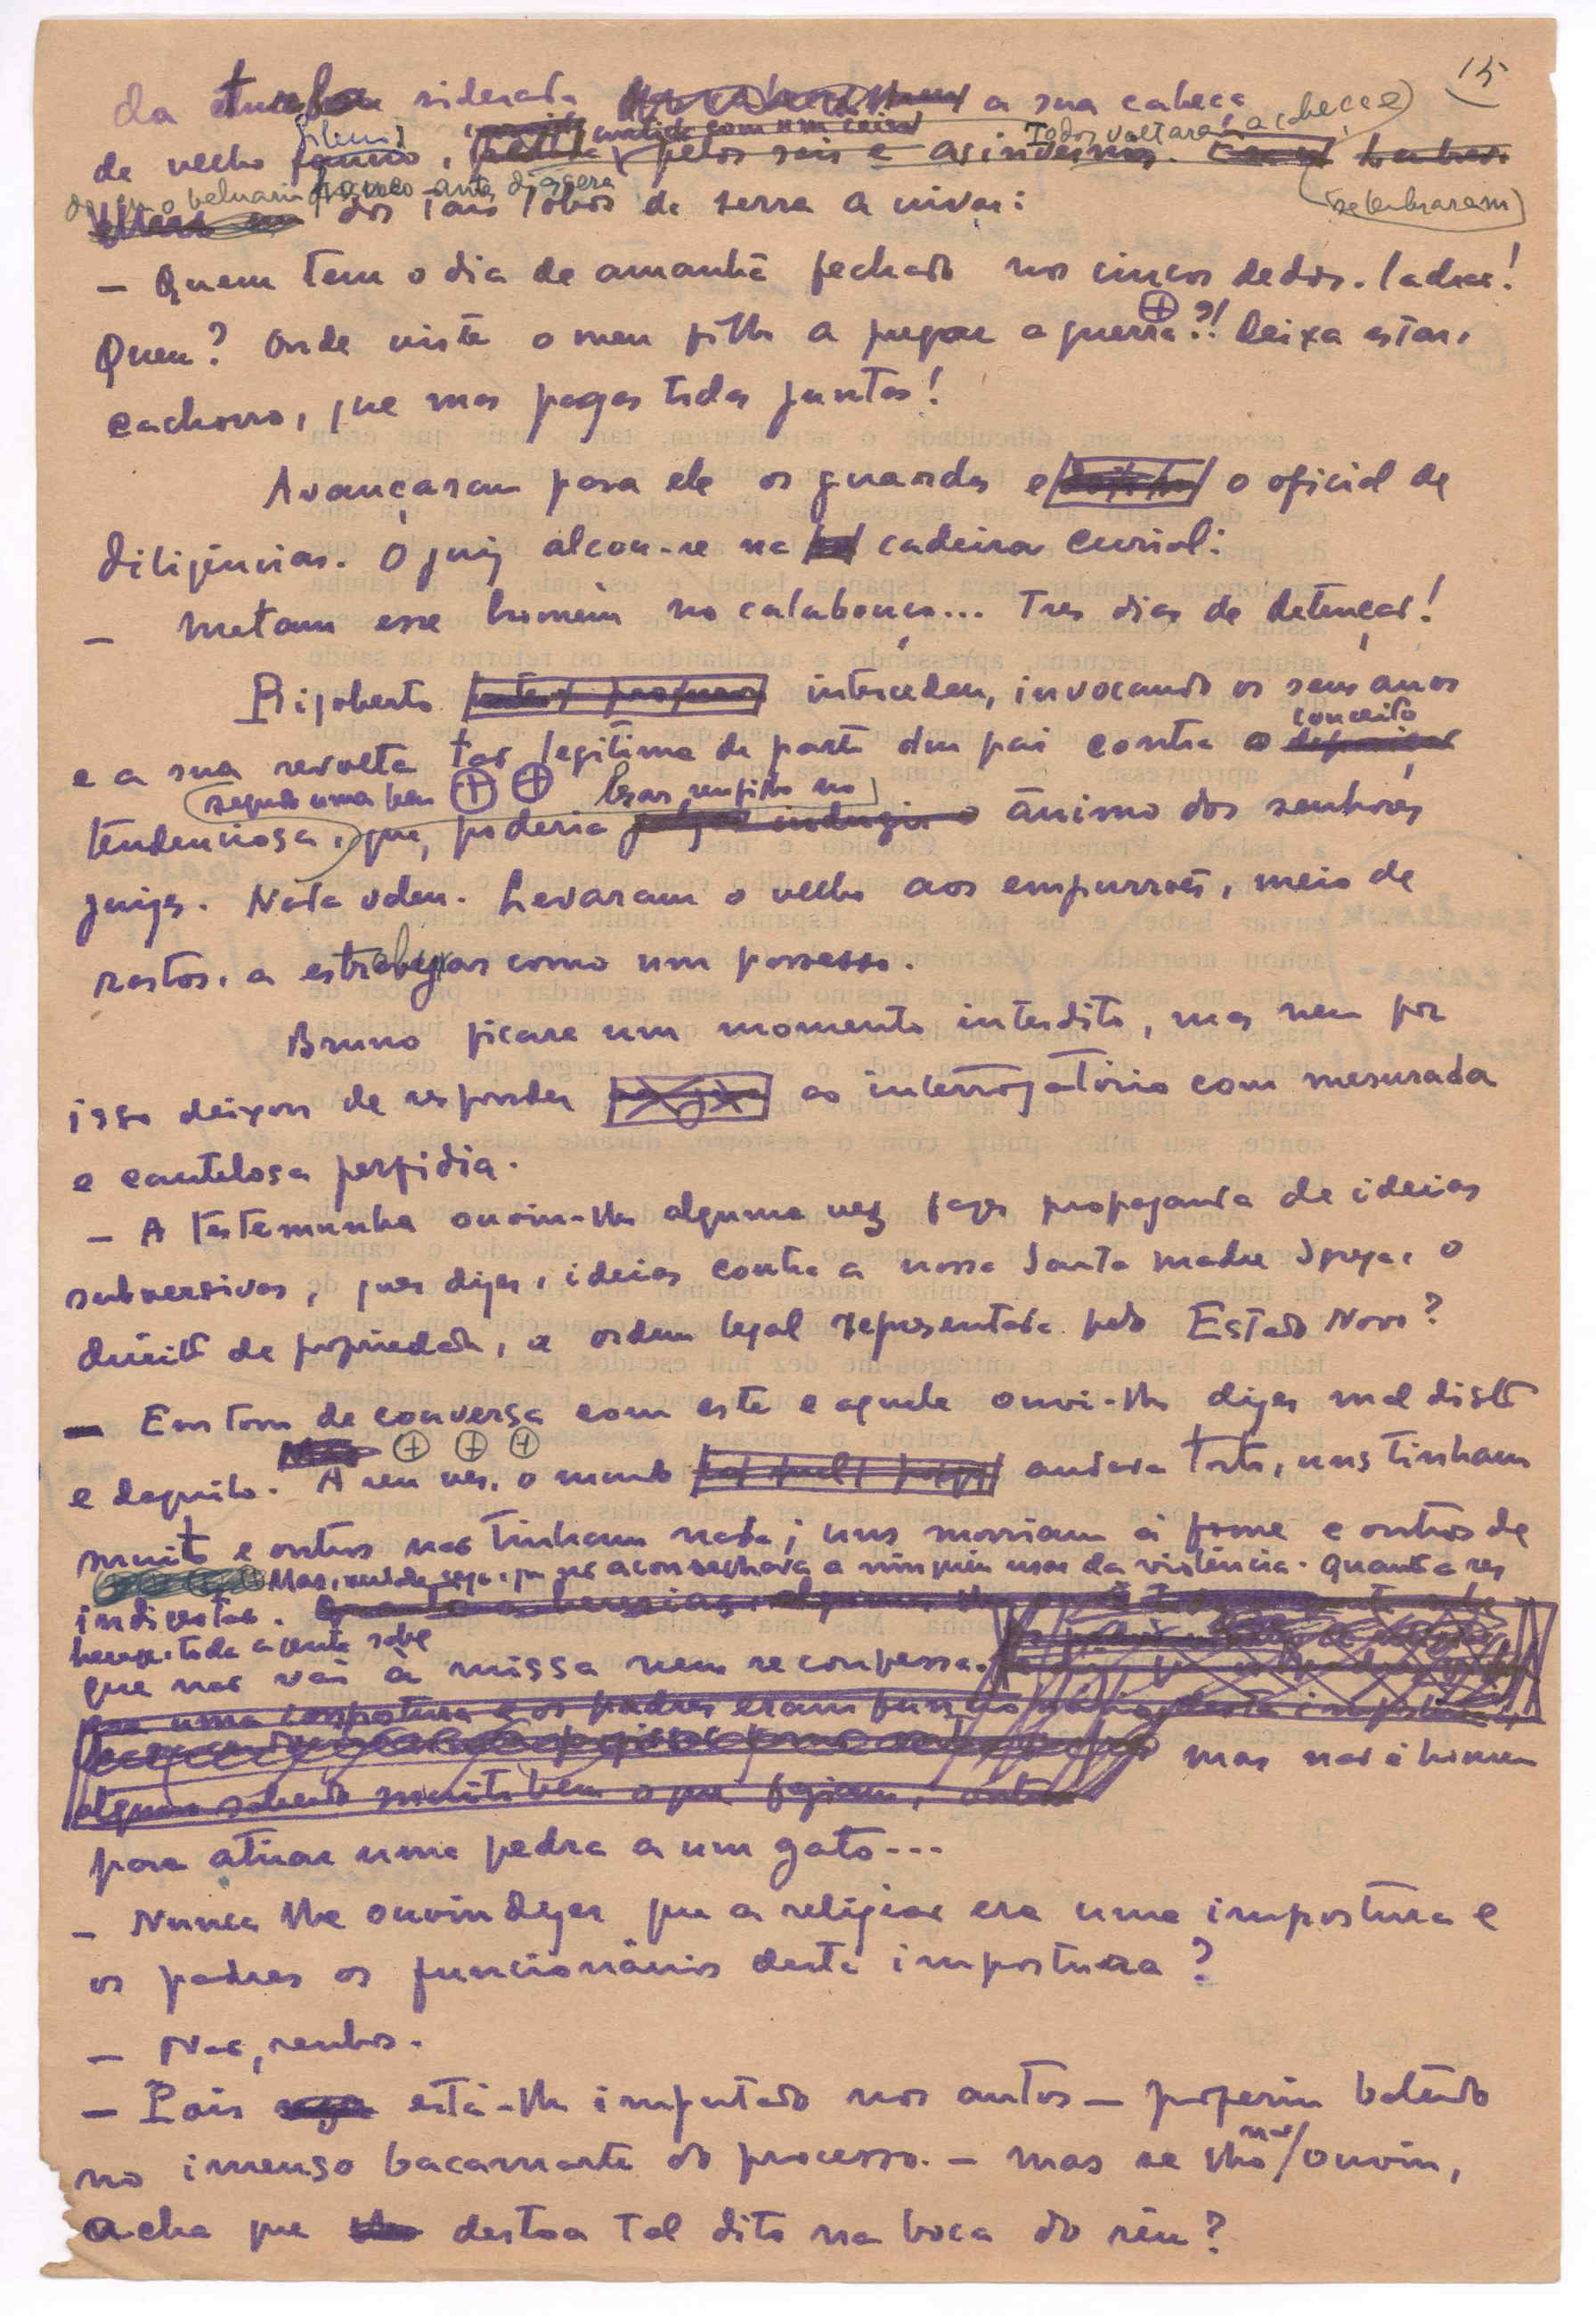 15
da turba siderada a sua cabeça
Todos voltaram a cabeça e
de velho sileno, pelos sóis e as invernias.
se lembraram
do que o beluario há pouco antes dissera
dos tais lobos da serra a uivar:
— Quem tem o dia de amanhã fechado nos cincos dedos, ladrão!
Quem? Onde viste o meu filho a pregar a guerra?! Deixa estar,
cachorro, que mas pagas todas juntas!
Avançaram para ele os guardas e o oficial de
diligências. O juiz alçou-se na cadeira curial:
— Metam esse homem no calabouço... Tres dias de detenção!
Rigoberto intercedeu, invocando os seus anos
conceito
e a sua revolta tão legítima da parte dum pai contra o
segundo uma pena calar, rengido no
tendenciosa, que, poderia ânimo dos senhores
juizes. Nada valeu. Levaram o velho aos empurrões, meio de
rastos, a estrebuchar como um possesso.
Bruno ficara um momento interdito, mas nem por
isso deixou de responder ao interrogatório com mesurada
e cautelosa perfídia.
— A testemunha ouviu-lhe alguma vez fazer propaganda de ideias
subversivas, quer dizer, ideias contra a nossa Santa Madre Igreja, o
direito de propriedade, a ordem legal representada pelo Estado Novo?
— Em tom de conversa com este e aquele ouvi-lhe dizer mal disto
e daquilo. A seu ver, o mundo andava torto, uns tinham
muito e outros não tinham nada; uns morriam à fome e outros de
Mas, verdade seja, que não aconselhava a ninguém usar da violência. Quanto a ser
indigestão.
herege, toda a gente sabe
que não vai à missa nem se confessa.
que uma impostura e os padres eram funcionários desta impostura
mas não é homem
alguns sabendo muito bem o que faziam,
para atirar uma pedra a um gato...
— Nunca lhe ouviu dizer que a religião era uma impostura e
os padres os funcionários desta impostura?
— Não, senhor.
— Pois está-lhe imputado nos autos — proferiu batendo
não
no imenso bacamarte do processo. — Mas se lho ouviu,
acha que destoa tal dito na boca do réu?